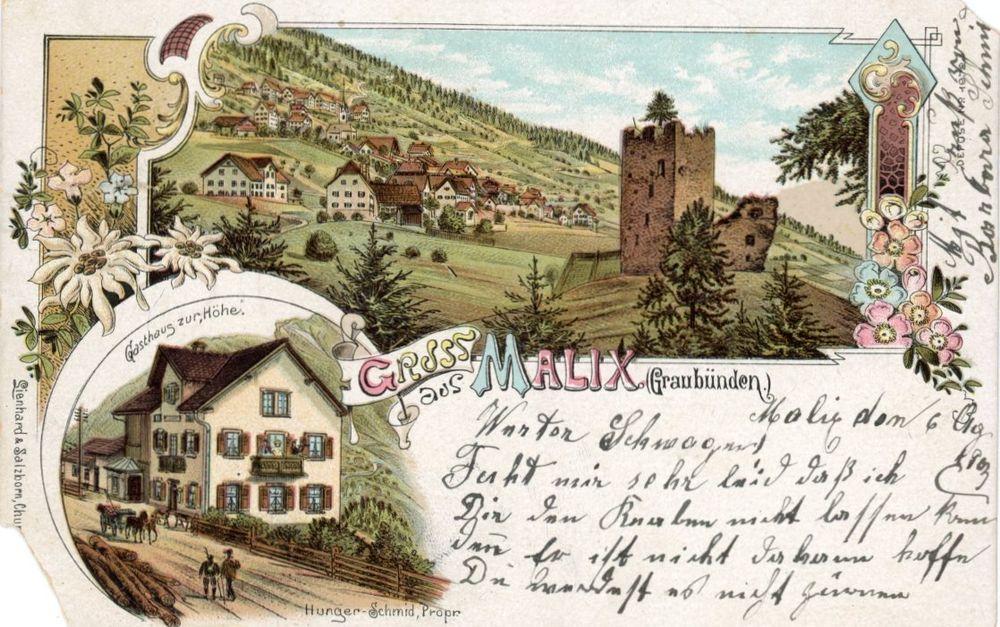 Gasthaus zur „Höhe“.
GRUSS
aus MALIX. (Graubünden.)
Malix den 6
Werter Schwager!
Tuht mir sehr leid daß ich
Dir den Knaben nicht lassen kann
denn Er ist nicht daheim hoffe
Du werdest es nicht zürnen
Mit Gruß
Barbara
Hunger-Schmid, Propr
Lienhard & Salzborn, Chur
DEPOSE